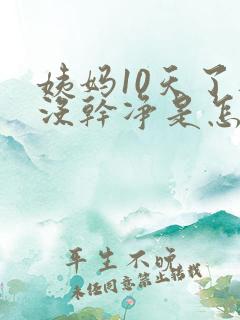 姨妈10天了
没幹净是怎
平生不晚
未经同意禁止转载